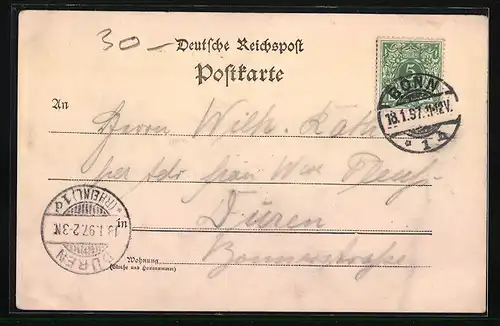 30 –
Deutsche Reichspost
Postkarte
5
BONN
18.1.97.11-12V.
* 1 h
An
Herrn Wilh.
Frau Wwe
in Düren
Bonnerstraße
Wohnung
(Straße und Hausnummer)
DÜREN
18.1.97.2-3N.
(RHEINL.) 1 d